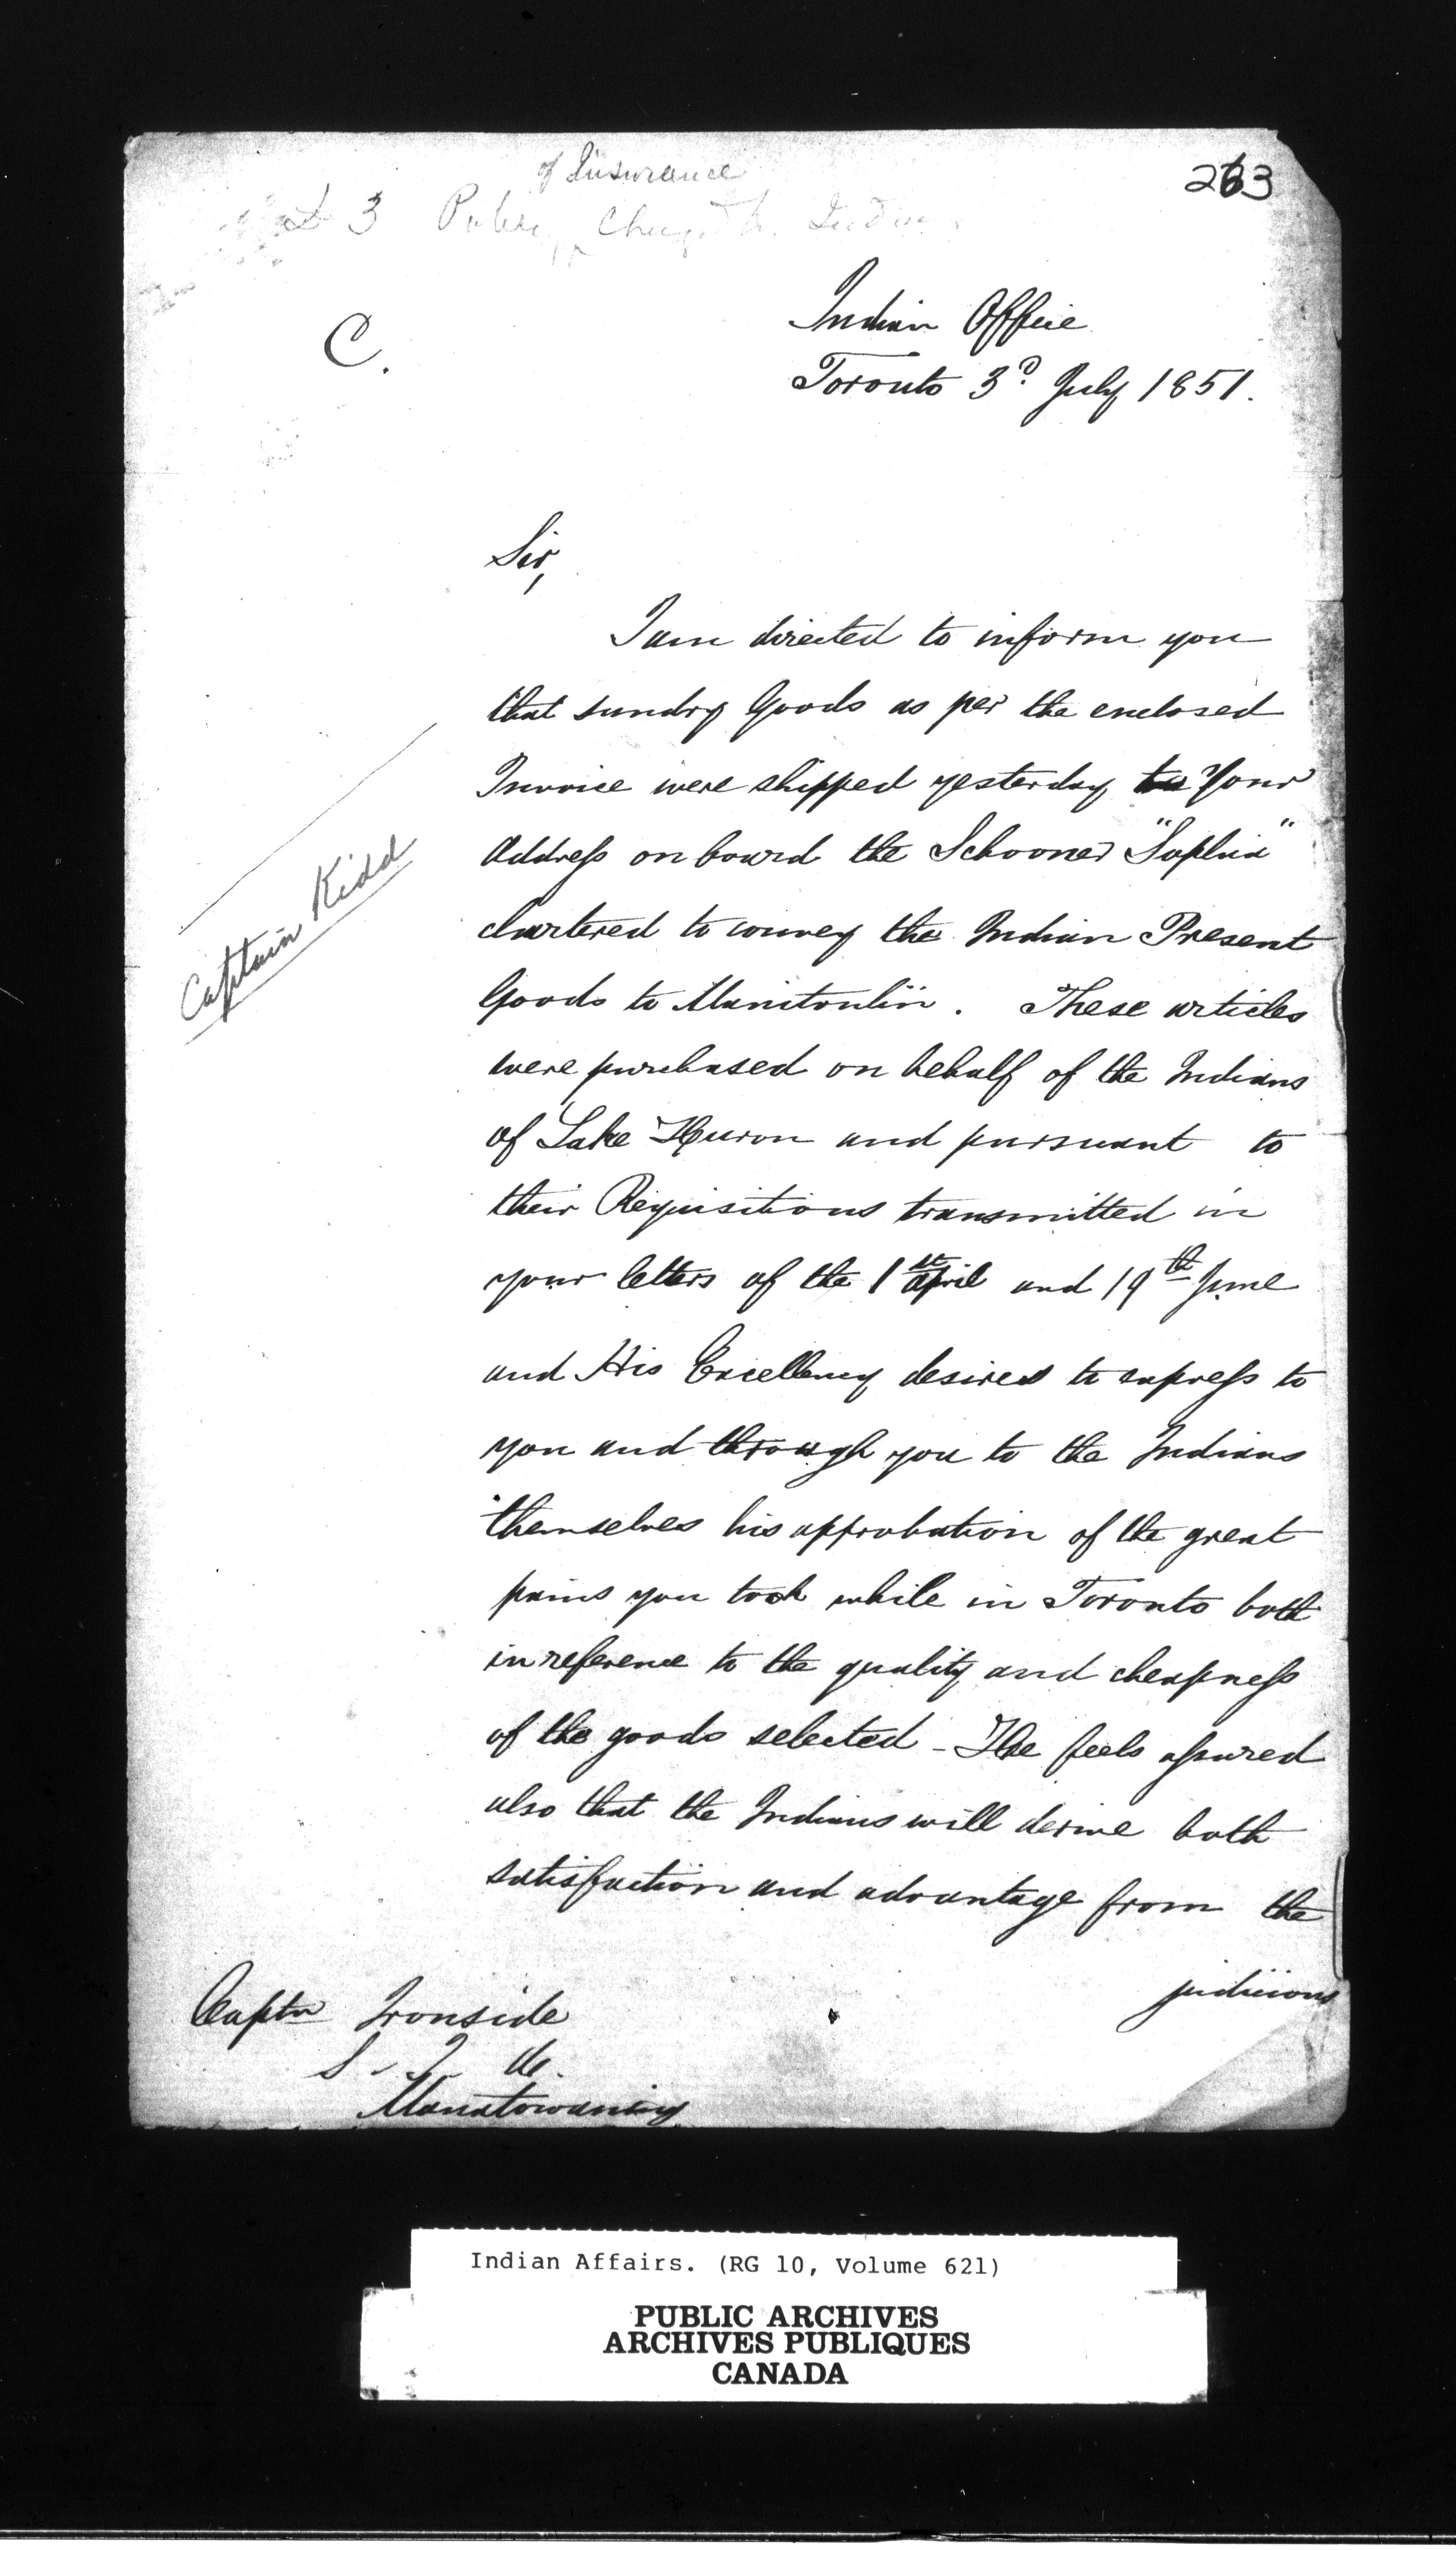 of Insurance
263
3
C.
Indian Office
Toronto 3d July 1851.
Sir,
I am directed to inform you
that sundry Goods as per the enclosed
Invoice were shipped yesterday to Your
Address on board the Schooner "Sophia"
chartered to convey the Indian Present
Goods to Manitoulin. These articles
were purchased on behalf of the Indians
of Lake Huron and pursuant to
their Requisitions transmitted in
your letters of the 1st April and 19th June
and His Excellency desires to express to
you and through you to the Indians
themselves his approbation of the great
pains you took while in Toronto both
in reference to the quality and cheapness
of the goods selected - He feels assured
also that the Indians will derive both
satisfaction and advantage from the
judicious
Captain Kidd
Captn Ironside
S. I. A.
Manatowaning
Indian Affairs. (RG 10, Volume 621)
PUBLIC ARCHIVES
ARCHIVES PUBLIQUES
CANADA